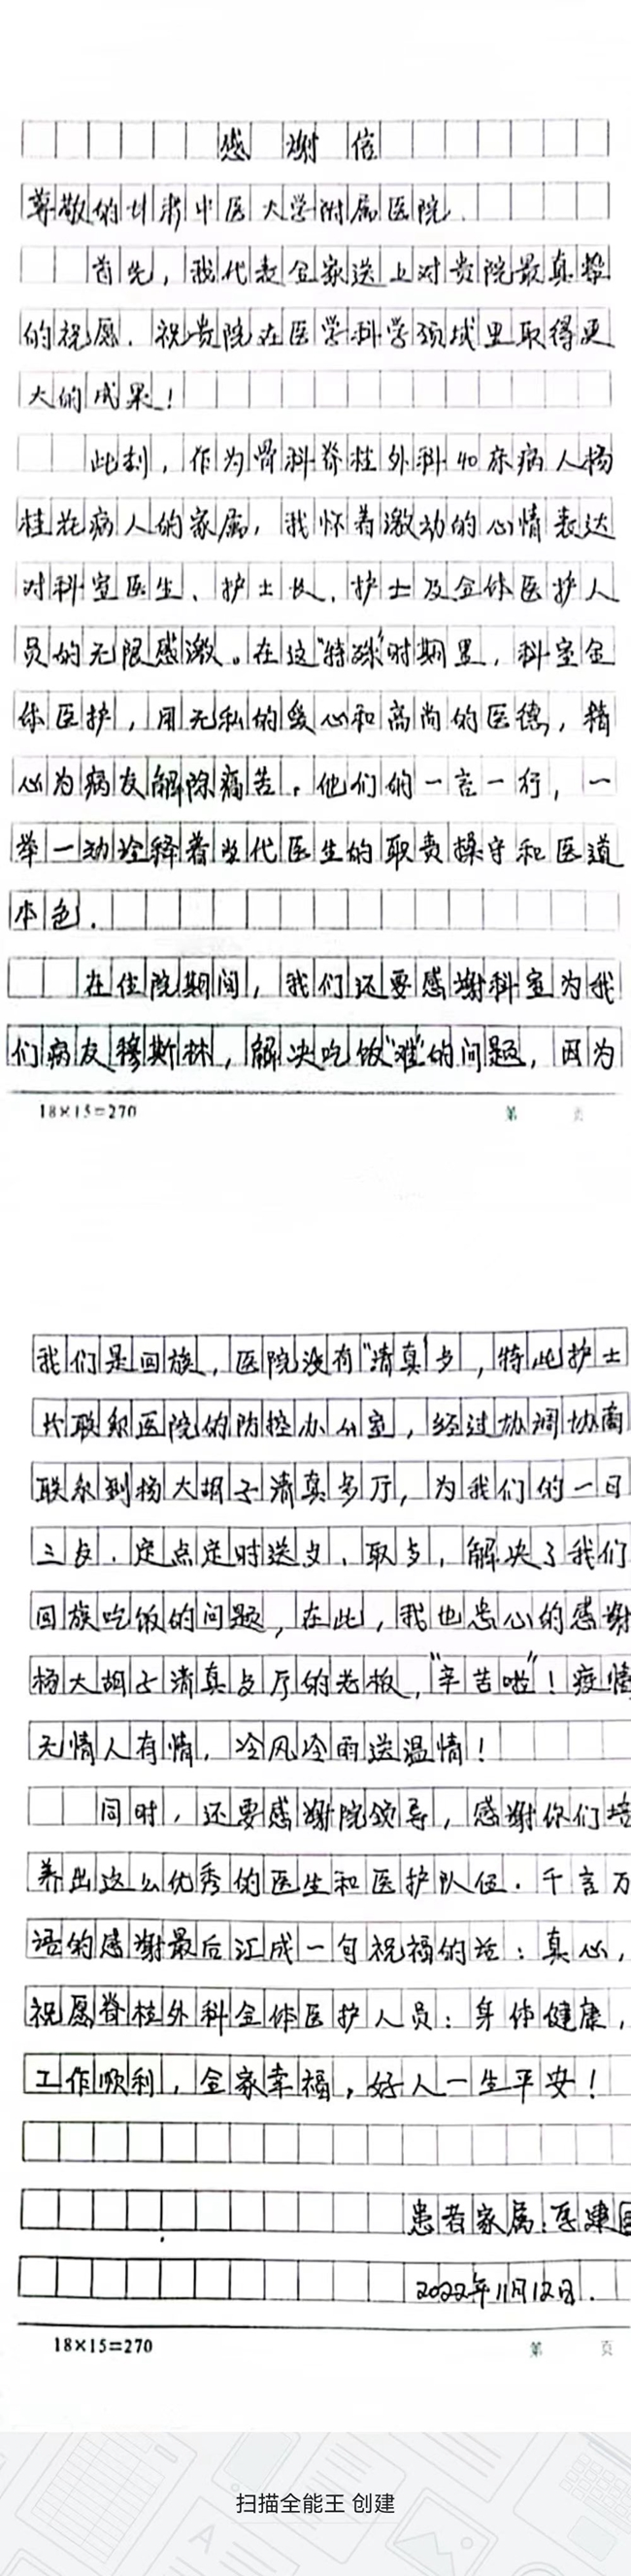 感谢信
尊敬的甘肃中医大学附属医院.
首先,我代表全家送上对贵院最真挚
的祝愿.祝贵院在医学科学领域里取得更
大的成果!
此刻,作为骨科脊柱外科40床病人杨
桂花病人的家属,我怀着激动的心情表达
对科室医生、护士长、护士及全体医护人
员的无限感激。在这"特殊"时期里,科室全
体医护,用无私的爱心和高尚的医德,精
心为病友解除痛苦.他们的一言一行,一
举一动诠释着当代医生的职责操守和医道
本色.
在住院期间,我们还要感谢科室为我
们病友穆斯林,解决吃饭"难"的问题,因为
18×15=270 第 页
我们是回族,医院没有"清真"歺,特此护士
长联系医院的防控办公室,经过协调协商
联系到杨大胡子清真歺厅,为我们的一日
三歺.定点定时送歺、取歺,解决了我们
回族吃饭的问题,在此,我也忠心的感谢
杨大胡子清真歺厅的老板,"辛苦啦"!疫情
无情人有情,冷风冷雨送温情!
同时,还要感谢院领导,感谢你们培
养出这么优秀的医生和医护队伍.千言万
语的感谢最后汇成一句祝福的话:真心,
祝愿脊柱外科全体医护人员:身体健康,
工作顺利,全家幸福,好人一生平安!
患者家属:建国
2022年11月12日.
18×15=270 第 页
扫描全能王 创建